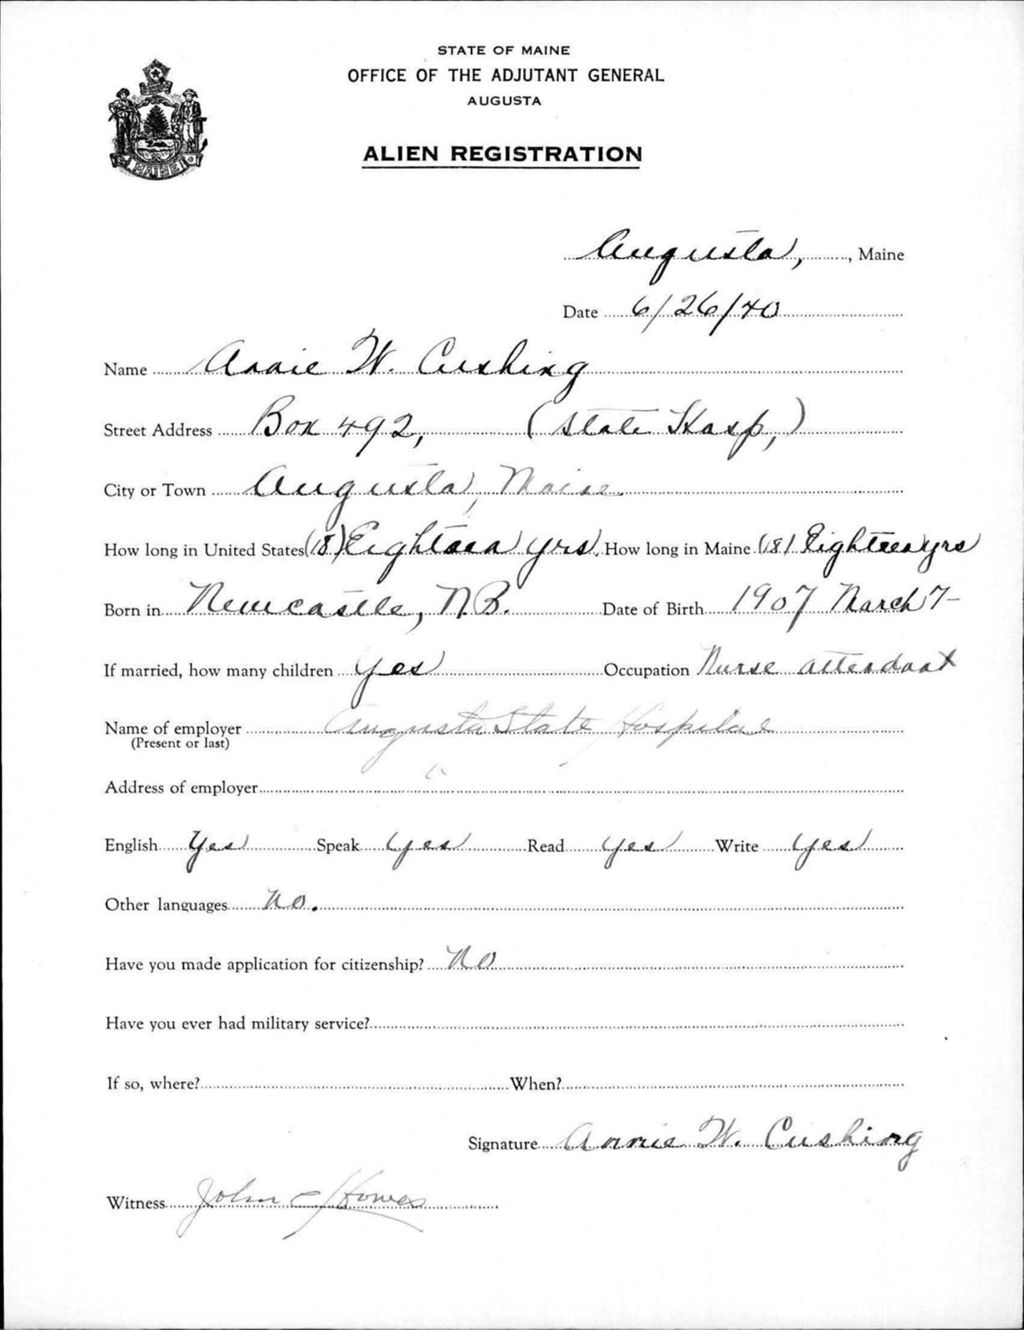 STATE OF MAINE
OFFICE OF THE ADJUTANT GENERAL
AUGUSTA
ALIEN REGISTRATION
MAINE
Augusta, , Maine
Date 6/26/40
Name Annie W. Cushing
Street Address Box 492, (State Hosp,)
City or Town Augusta, Maine.
How long in United States (18) Eighteen yrs. How long in Maine (18) Eighteen yrs
Born in Newcastle, N.B. Date of Birth 1907 March 7-
If married, how many children Yes Occupation Nurse attendant
Name of employer Augusta State Hospital
(Present or last)
Address of employer "
English Yes Speak Yes Read Yes Write Yes
Other languages No.
Have you made application for citizenship? No
Have you ever had military service?
If so, where? When?
Signature Annie W. Cushing
Witness John C Howes